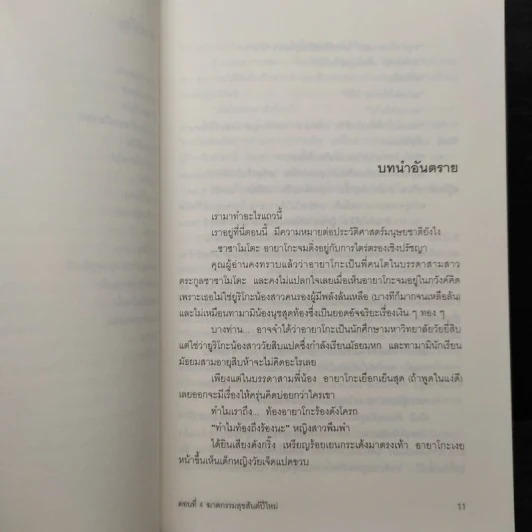 บทนำอันตราย
เรามาทำอะไรแถวนี้
เราอยู่ที่นี่ตอนนี้ มีความหมายต่อประวัติศาสตร์มนุษยชาติยังไง
...ซาซาโมโตะ อายาโกะจมดิ่งอยู่กับการไตร่ตรองเชิงปรัชญา
คุณผู้อ่านคงทราบแล้วว่าอายาโกะเป็นพี่คนโตในบรรดาสามสาว
ตระกูลซาซาโมโตะ และคงไม่แปลกใจเลยเมื่อเห็นอายาโกะจมอยู่ในภวังค์คิด
เพราะเธอไม่ใช่ยูริโกะน้องสาวคนรองผู้มีพลังล้นเหลือ (บางทีก็มากจนเหลือล้น)
และไม่เหมือนทามามิน้องนุชสุดท้องซึ่งเป็นยอดอัจฉริยะเรื่องเงิน ๆ ทอง ๆ
บางท่าน... อาจจำได้ว่าอายาโกะเป็นนักศึกษามหาวิทยาลัยวัยยี่สิบ
แต่ใช่ว่ายูริโกะน้องสาววัยสิบแปดซึ่งกำลังเรียนมัธยมหก และทามามินักเรียน
มัธยมสามอายุสิบห้าจะไม่คิดอะไรเลย
เพียงแต่ในบรรดาสามพี่น้อง อายาโกะเยือกเย็นสุด (ถ้าพูดในแง่ดี)
เลยออกจะมีเรื่องให้ครุ่นคิดบ่อยกว่าใครเขา
ทำไมเราถึง... ท้องอายาโกะร้องดังโครก
"ทำไมท้องถึงร้องนะ" หญิงสาวพึมพำ
ได้ยินเสียงดังกริ๊ง เหรียญร้อยเยนกระเด้งมาตรงเท้า อายาโกะเงย
หน้าขึ้นเห็นเด็กหญิงวัยเจ็ดแปดขวบ
ตอนที่ 4 ฆาตกรรมสุขสันต์ปีใหม่ 11